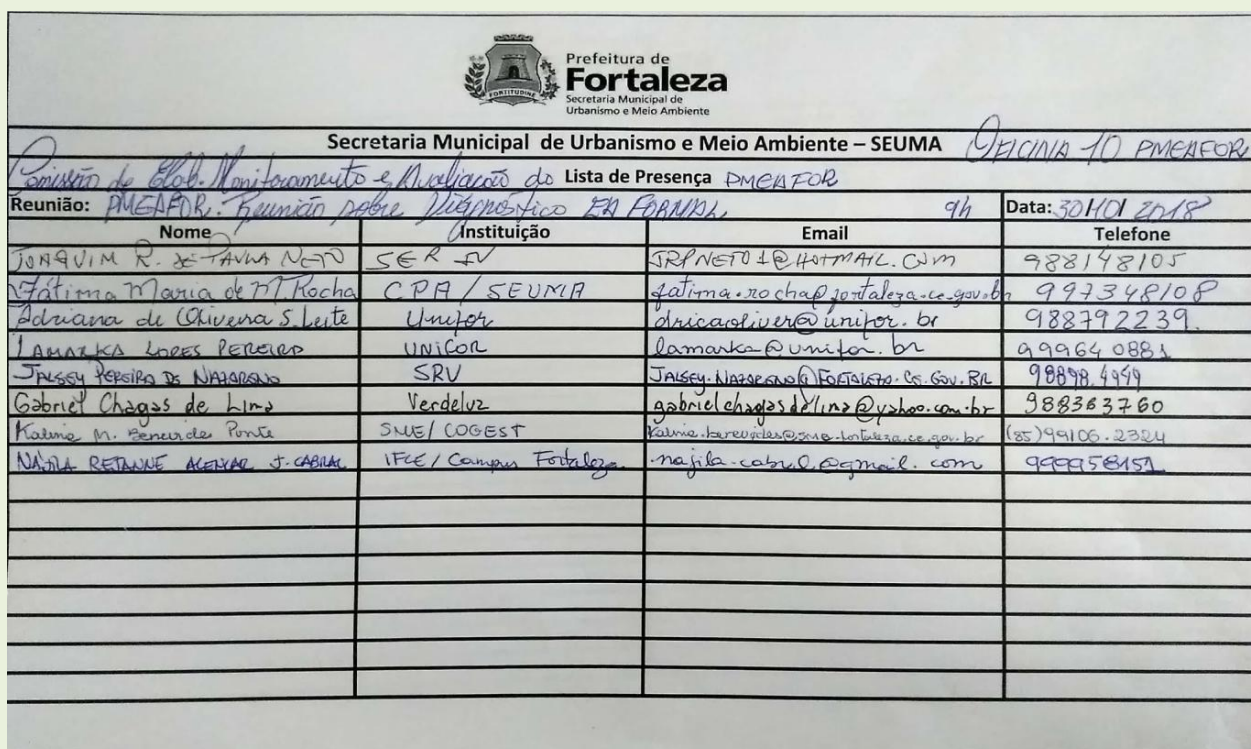 FORTITUDINE
Prefeitura de
Fortaleza
Secretaria Municipal de
Urbanismo e Meio Ambiente
Secretaria Municipal de Urbanismo e Meio Ambiente – SEUMA OFICINA 10 PMEAFOR
Comissão de Elab. Monitoramento e Avaliação do Lista de Presença PMEAFOR
Reunião: PMEAFOR. Reunião sobre Diagnóstico EA FORMAL 9h Data: 30/10/2018
Nome Instituição Email Telefone
JOAQUIM R. DE PAULA NETO SER IV JRPNETO1@HOTMAIL.COM 988148105
Fátima Maria de M. Rocha CPA / SEUMA fatima.rocha@fortaleza.ce.gov.br 997348108
Adriana de Oliveira S. Leite Unifor dricaoliver@unifor.br 988792239.
LAMARKA LOPES PEREIRA UNIFOR lamarka@unifor.br 99964 0881
JALSEY PEREIRA DE NAZARENO SRV JALSEY.NAZARENO@FORTALEZA.CE.GOV.BR 98898.4949
Gabriel Chagas de Lima Verdeluz gabrielchagasdelima@yahoo.com.br 988363760
Kalina M. Ponte SME/COGEST (85)99106.2324
RETANNE ALENCAR J. CABRAL IFCE/Campus Fortaleza 999958151